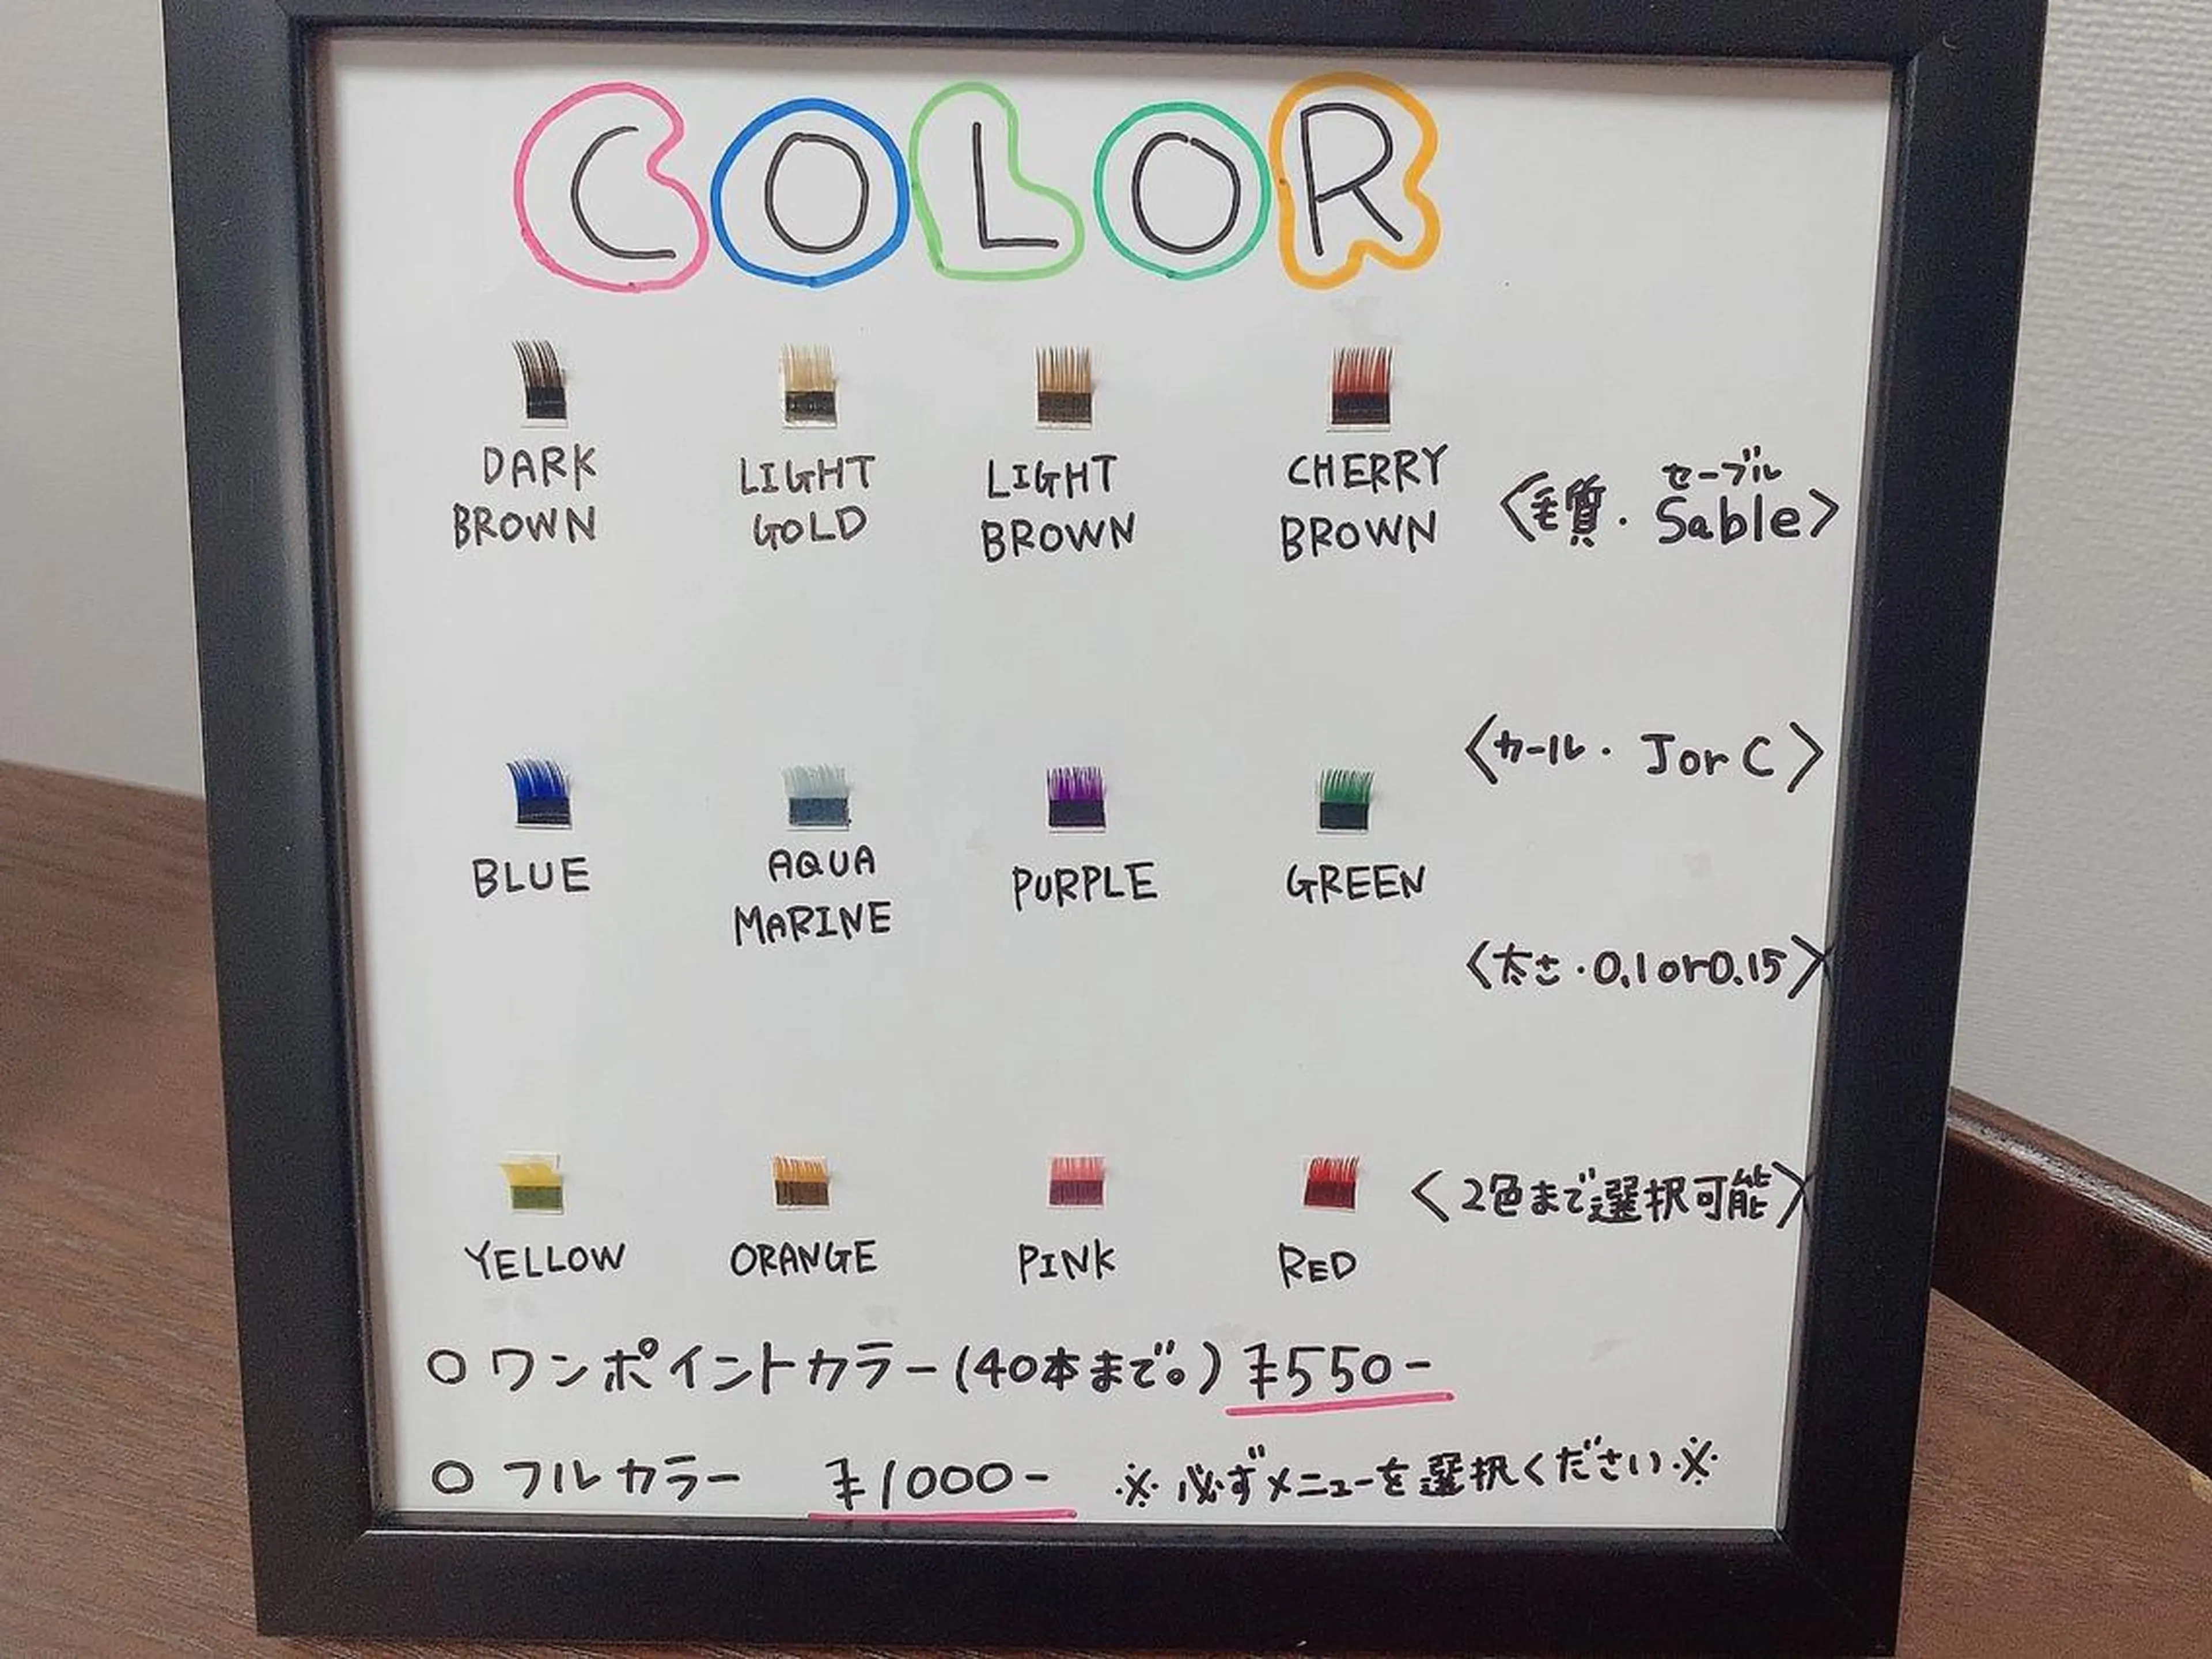 COLOR
DARK
BROWN
LIGHT
GOLD
LIGHT
BROWN
CHERRY
BROWN
セーブル
〈毛質・Sable〉
〈カール・JorC〉
BLUE
AQUA
MARINE
PURPLE
GREEN
〈太さ・0.1or0.15〉
YELLOW
ORANGE
PINK
RED
〈2色まで選択可能〉
○ワンポイントカラー(40本まで。)¥550-
○フルカラー ¥1000- ※必ずメニューを選択ください※